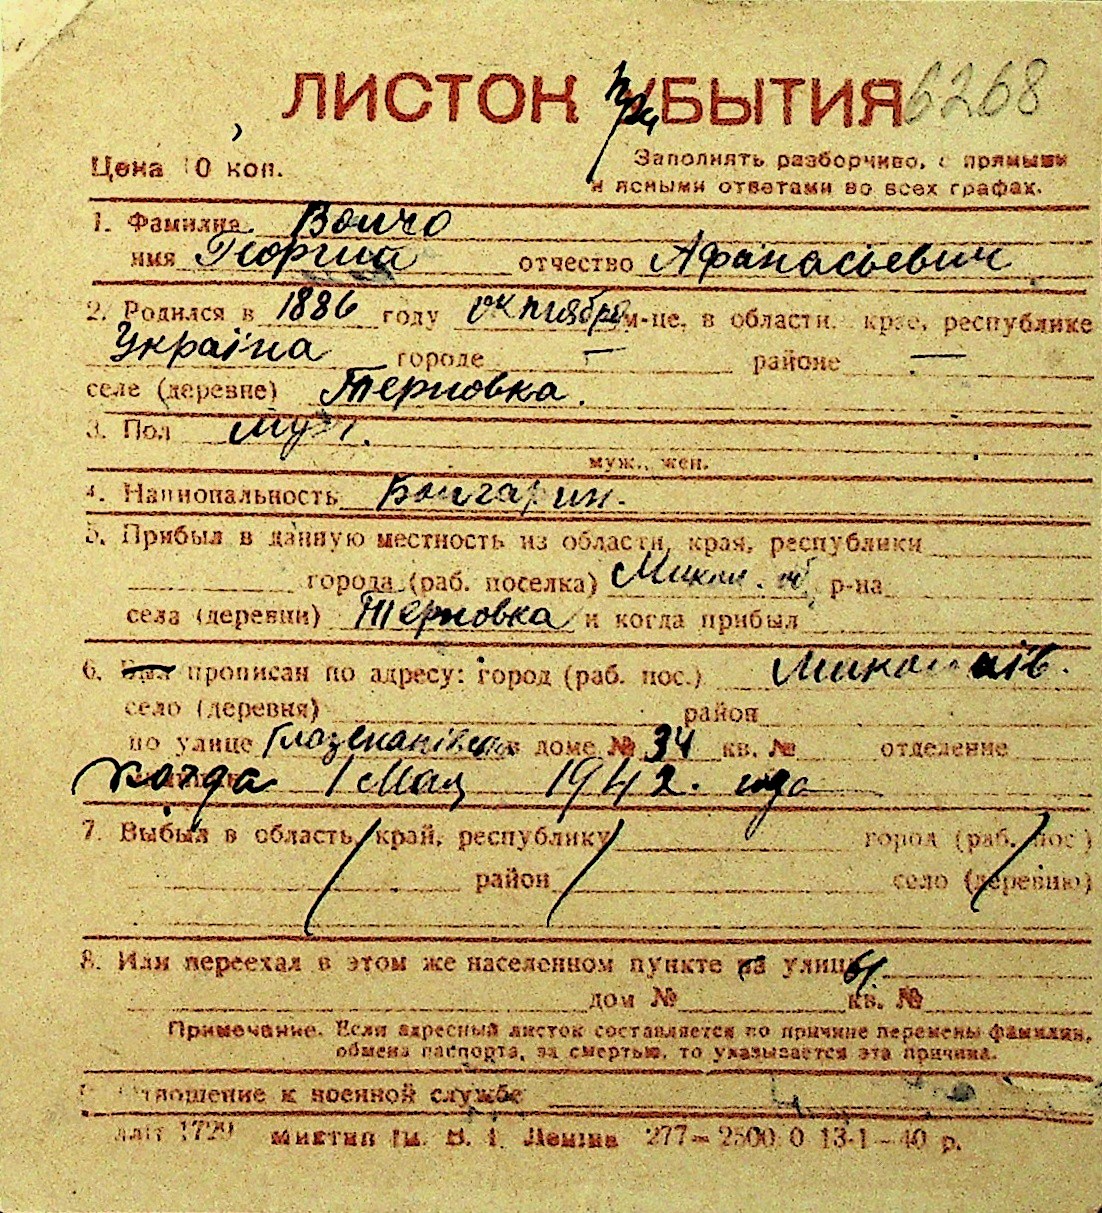 ЛИСТОК УБЫТИЯ 6268
при
Цена 10 коп.
Заполнять разборчиво, с прямыми
и ясными ответами во всех графах.
1. Фамилия Волчо
имя Георгий отчество Афанасьевич
2. Родился в 1886 году октября м-це, в области, крае, республике
Україна городе — районе —
селе (деревне) Терновка.
3. Пол муж.
муж., жен.
4. Национальность Болгарин.
5. Прибыл в данную местность из области, края, республики
города (раб. поселка) Микол. об р-на
села (деревни) Терновка и когда прибыл
6. Был прописан по адресу: город (раб. пос.) Миколаїв.
село (деревня) район
по улице в доме № 34 кв. № отделение
когда 1 Мая 1942. года
7. Выбыл в область, край, республику город (раб. пос.)
район село (деревню)
8. Или переехал в этом же населенном пункте на улицу
дом № кв. №
Примечание. Если адресный листок составляется по причине перемены фамилии,
обмена паспорта, за смертью, то указывается эта причина.
9. Отношение к военной службе
1729 Миктип им. В. І. Леніна 277—2500 0 13-1—40 р.